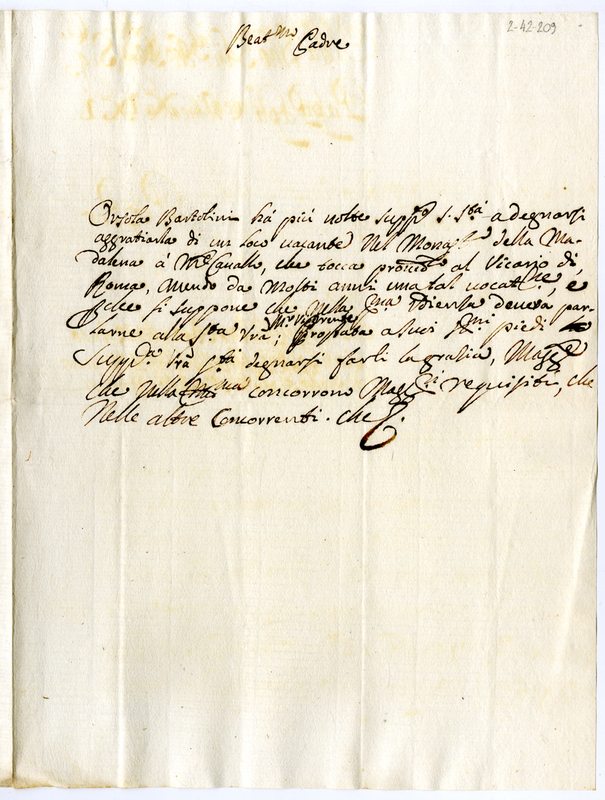 2-42-209
Beat.mo Padre
Orsola Bartolini hà più volte supp.to S. S.tà a degnarsi
aggratiarla di un loco vacante nel Monast.ro della Ma-
dalena à M.te Cavallo, che tocca proved.lo al Vicario di
Roma, avendo da molti anni una tal vocat.ne, e
che si suppone che nella p.ma Udienza doverà par-
larne alla S.tà Vrã; Mr. Vicegerente
Prostata a suoi S.mi piedi
supp.ca Vrã S.tà degnarsi farli la gratia, Magg.te
che nella concorrono Magg.ri requisiti, che
nelle altre Concorrenti. che